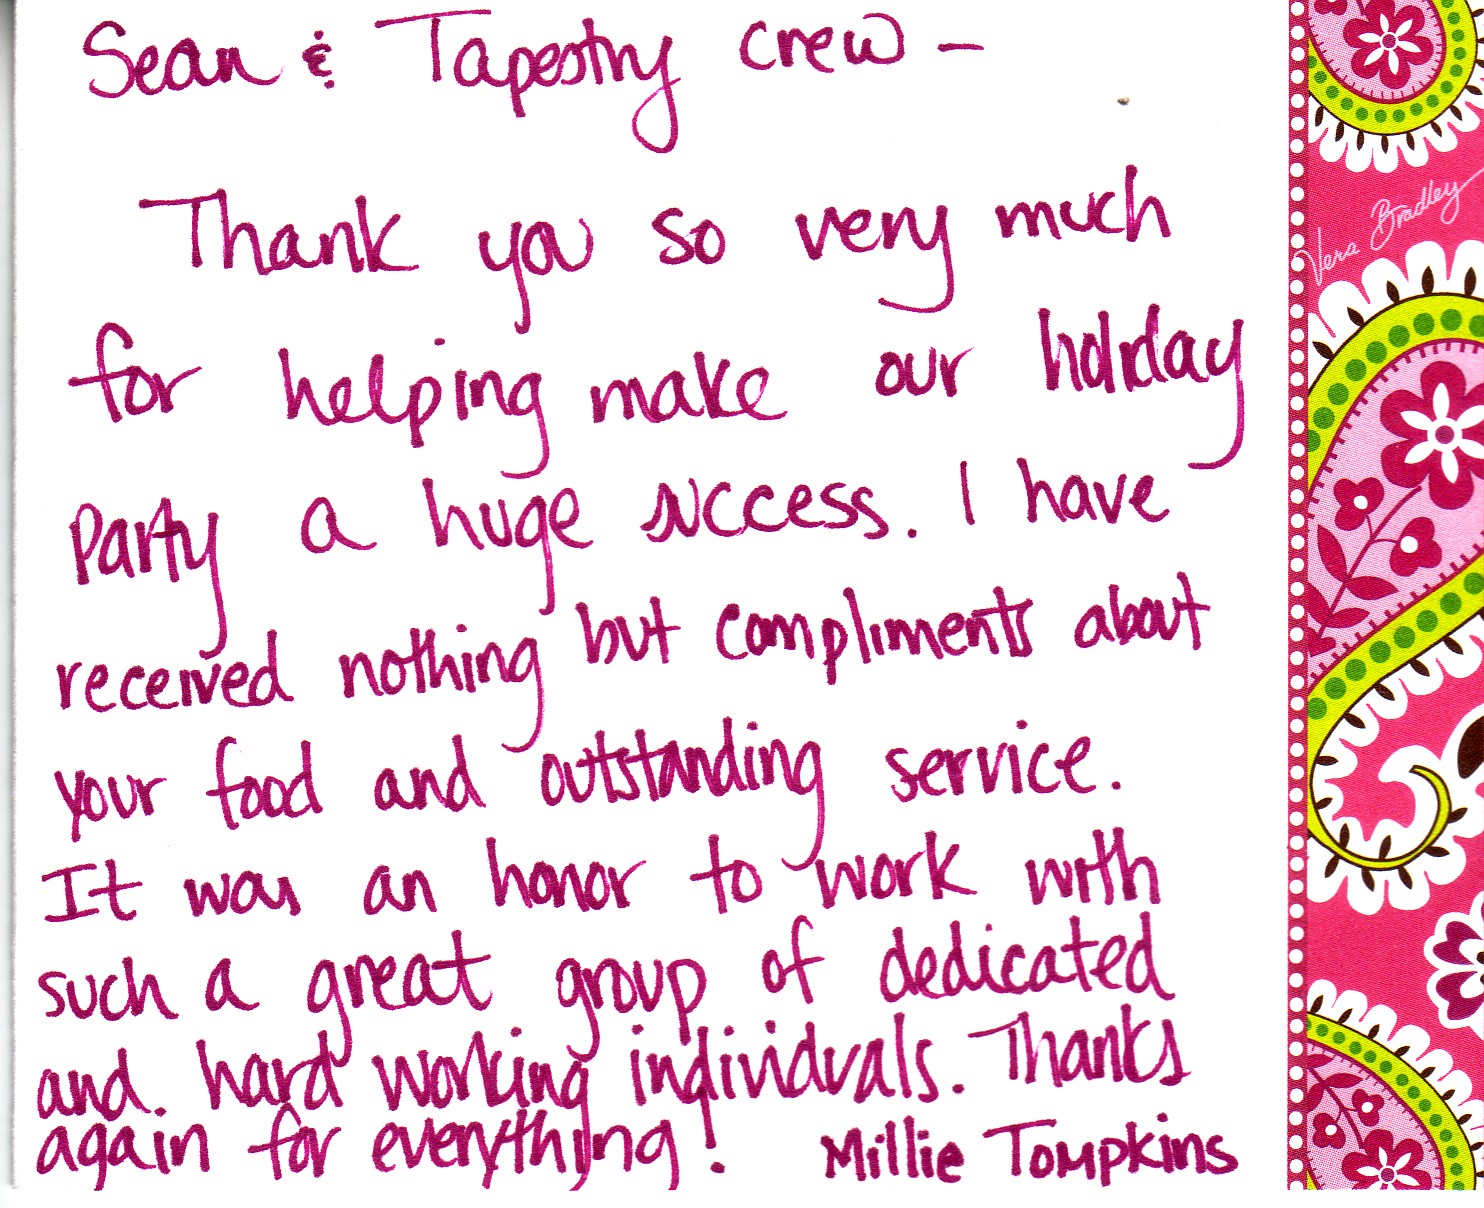 Sean & Tapestry crew –
Thank you so very much
for helping make our holiday
party a huge success. I have
received nothing but compliments about
your food and outstanding service.
It was an honor to work with
such a great group of dedicated
and. hard working individuals. Thanks
again for everything! Millie Tompkins
Vera Bradley